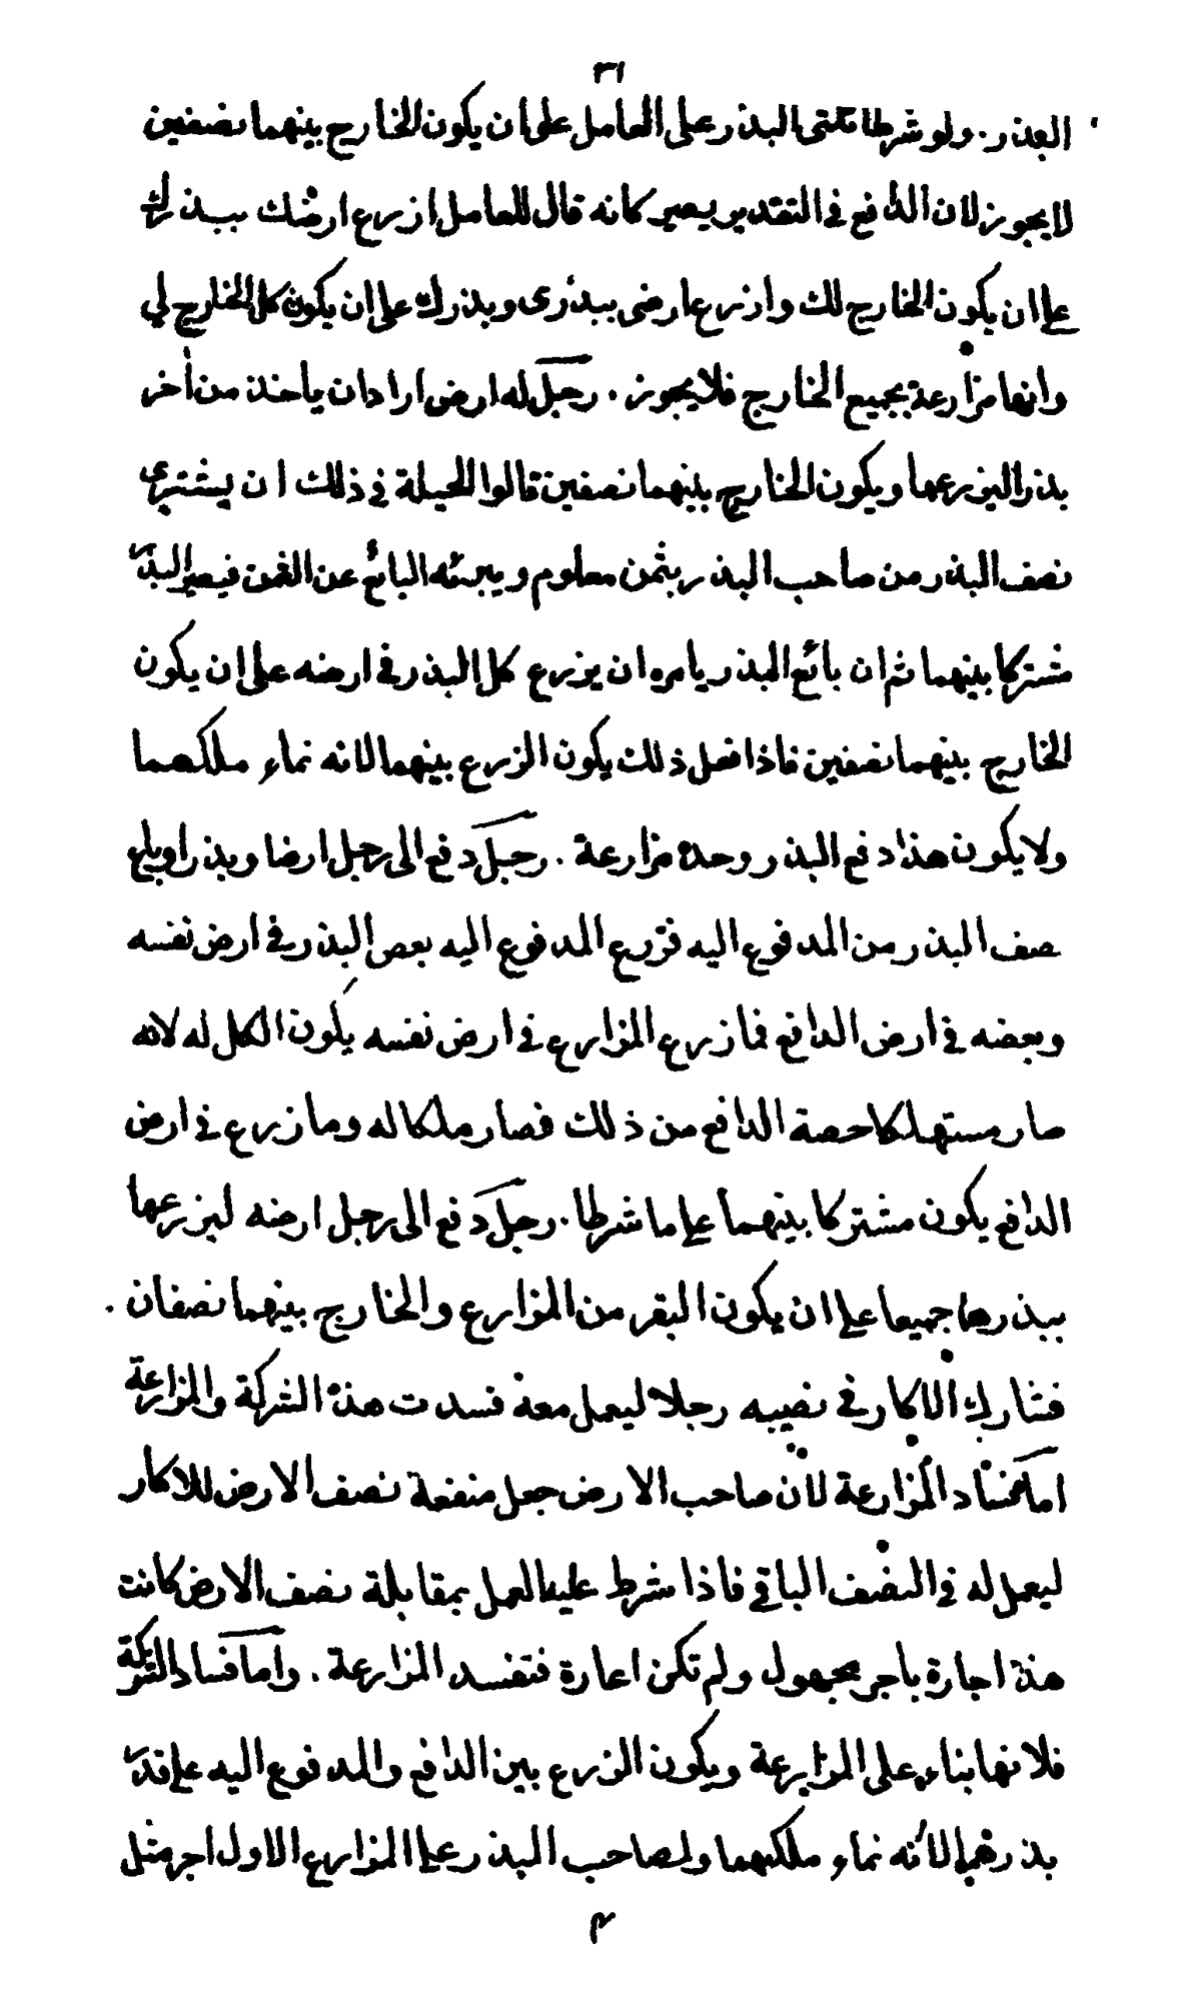 ٣١
العذر. ولو شرطا ثلثى البذر على العامل على ان يكون الخارج بينهما نصفين
لا يجوز لان الدافع فى التقدير يصير كانه قال للعامل ازرع ارضك ببذرك
على ان يكون الخارج لك وازرع ارضى ببذرى وبذرك على ان يكون كل الخارج لي
وانها مزارعة بجميع الخارج فلا يجوز. رجل له ارض اراد ان ياخذ من آخر
بذرا ليزرعها ويكون الخارج بينهما نصفين قالوا الحيلة فى ذلك ان يشترى
نصف البذر من صاحب البذر بثمن معلوم ويبرئه البائع عن الثمن فيصير البذر
مشتركا بينهما ثم ان بائع البذر يامره ان يزرع كل البذر فى ارضه على ان يكون
الخارج بينهما نصفين فاذا فعل ذلك يكون الزرع بينهما لانه نماء ملكهما
ولا يكون هذا دفع البذر وحده مزارعة. رجل دفع الى رجل ارضا وبذرا وباع
نصف البذر من المدفوع اليه فزرع المدفوع اليه بعض البذر فى ارض نفسه
وبعضه فى ارض الدافع فما زرع المزارع فى ارض نفسه يكون الكل له لانه
صار مستهلكا حصة الدافع من ذلك فصار ملكا له وما زرع فى ارض
الدافع يكون مشتركا بينهما على ما شرطا. رجل دفع الى رجل ارضه ليزرعها
ببذرهما جميعا على ان يكون البقر من المزارع والخارج بينهما نصفان.
فشارك الاكار فى نصيبه رجلا ليعمل معه فسدت هذه الشركة والمزارعة
اما فساد المزارعة لان صاحب الارض جعل منفعة نصف الارض للاكار
ليعمل له فى النصف الباقى فاذا شرط عليه العمل بمقابلة نصف الارض كانت
هذه اجارة باجر مجهول ولم تكن اعارة فتفسد المزارعة. واما فساد الشركة
فلانها بناء على المزارعة ويكون الزرع بين الدافع والمدفوع اليه على قدر
بذرهما لانه نماء ملكهما ولصاحب البذر على المزارع الاول اجر مثل